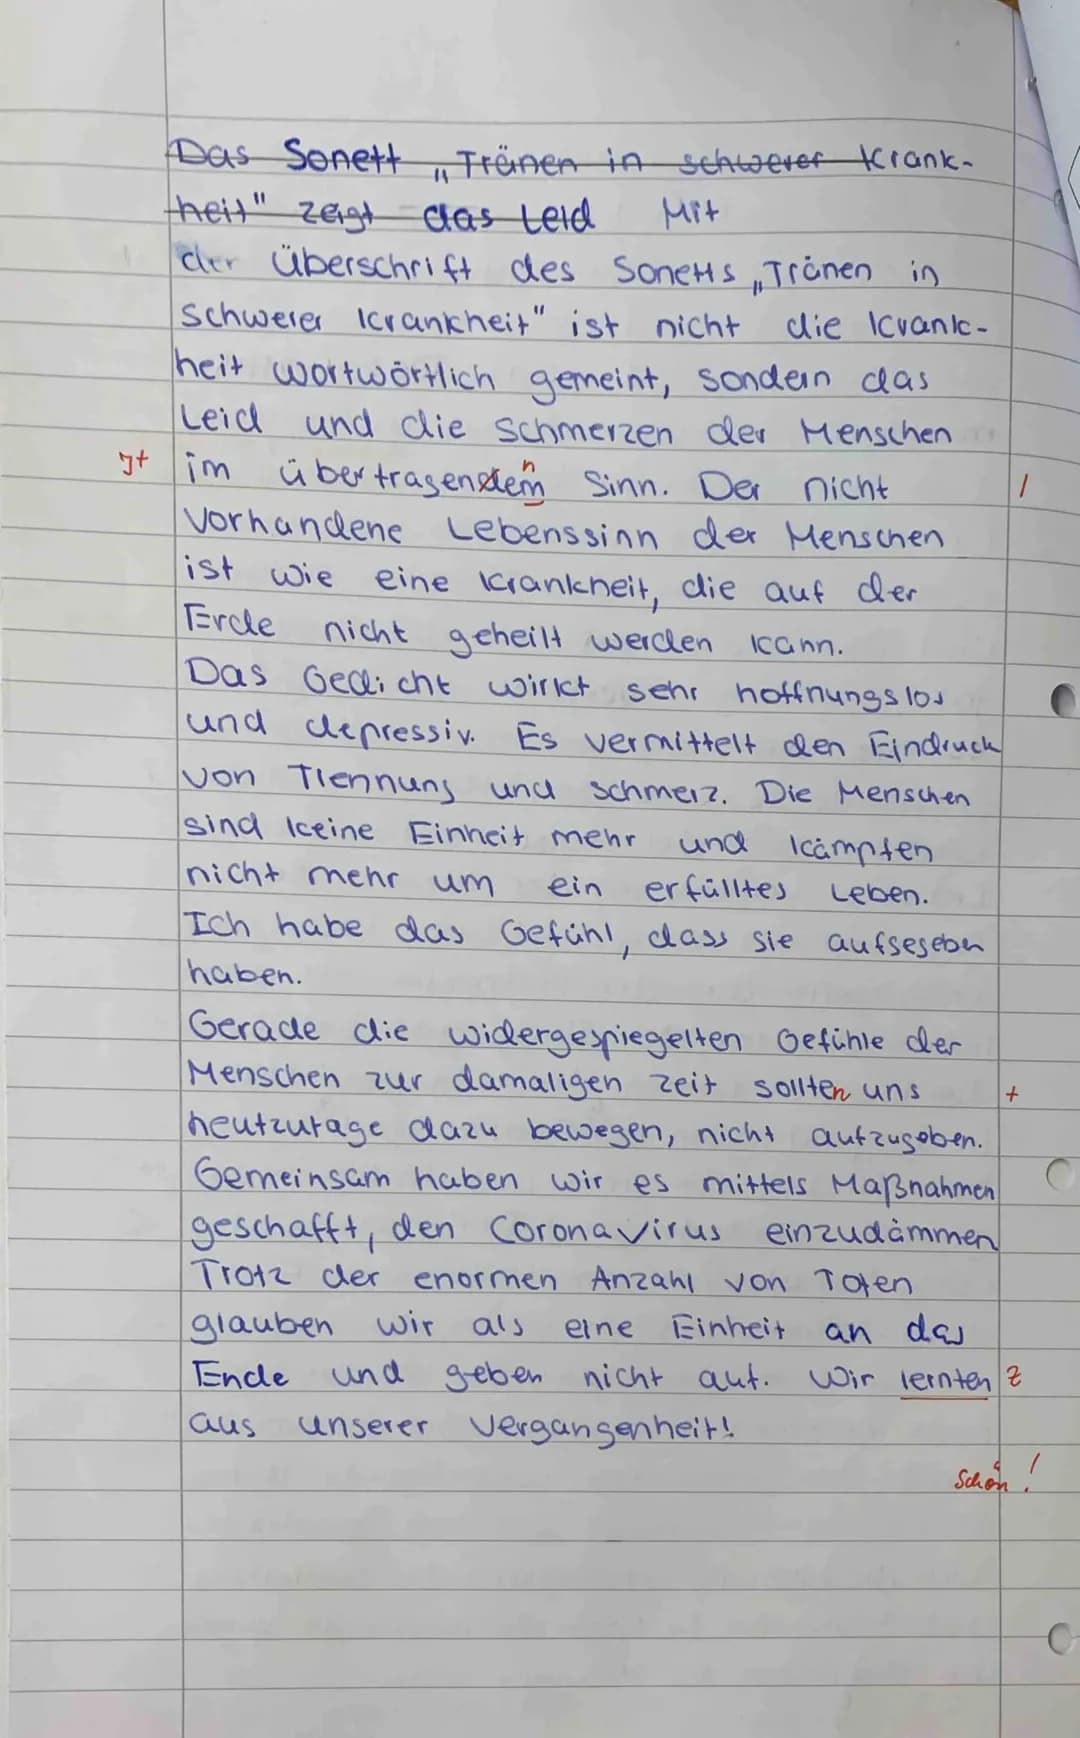 Das Sonett „Tränen in schwerer Krank-
heit" zeigt das Leid Mit
der Überschrift des Sonetts „Tränen in
schwerer Krankheit" ist nicht die Krank-
heit wortwörtlich gemeint, sondern das
Leid und die Schmerzen der Menschen
im übertragendem n Sinn. Der nicht /
vorhandene Lebenssinn der Menschen
ist wie eine Krankheit, die auf der
Erde nicht geheilt werden kann.
Das Gedicht wirkt sehr hoffnungslos
und depressiv. Es vermittelt den Eindruck
von Trennung und Schmerz. Die Menschen
sind keine Einheit mehr und kämpfen
nicht mehr um ein erfülltes Leben.
Ich habe das Gefühl, dass sie aufgegeben
haben.
Gerade die widergespiegelten Gefühle der
Menschen zur damaligen Zeit sollten uns +
heutzutage dazu bewegen, nicht aufzugeben.
Gemeinsam haben wir es mittels Maßnahmen
geschafft, den Coronavirus einzudämmen
Trotz der enormen Anzahl von Toten
glauben wir als eine Einheit an das
Ende und geben nicht auf. Wir lernten Z
aus unserer Vergangenheit!
Schön!